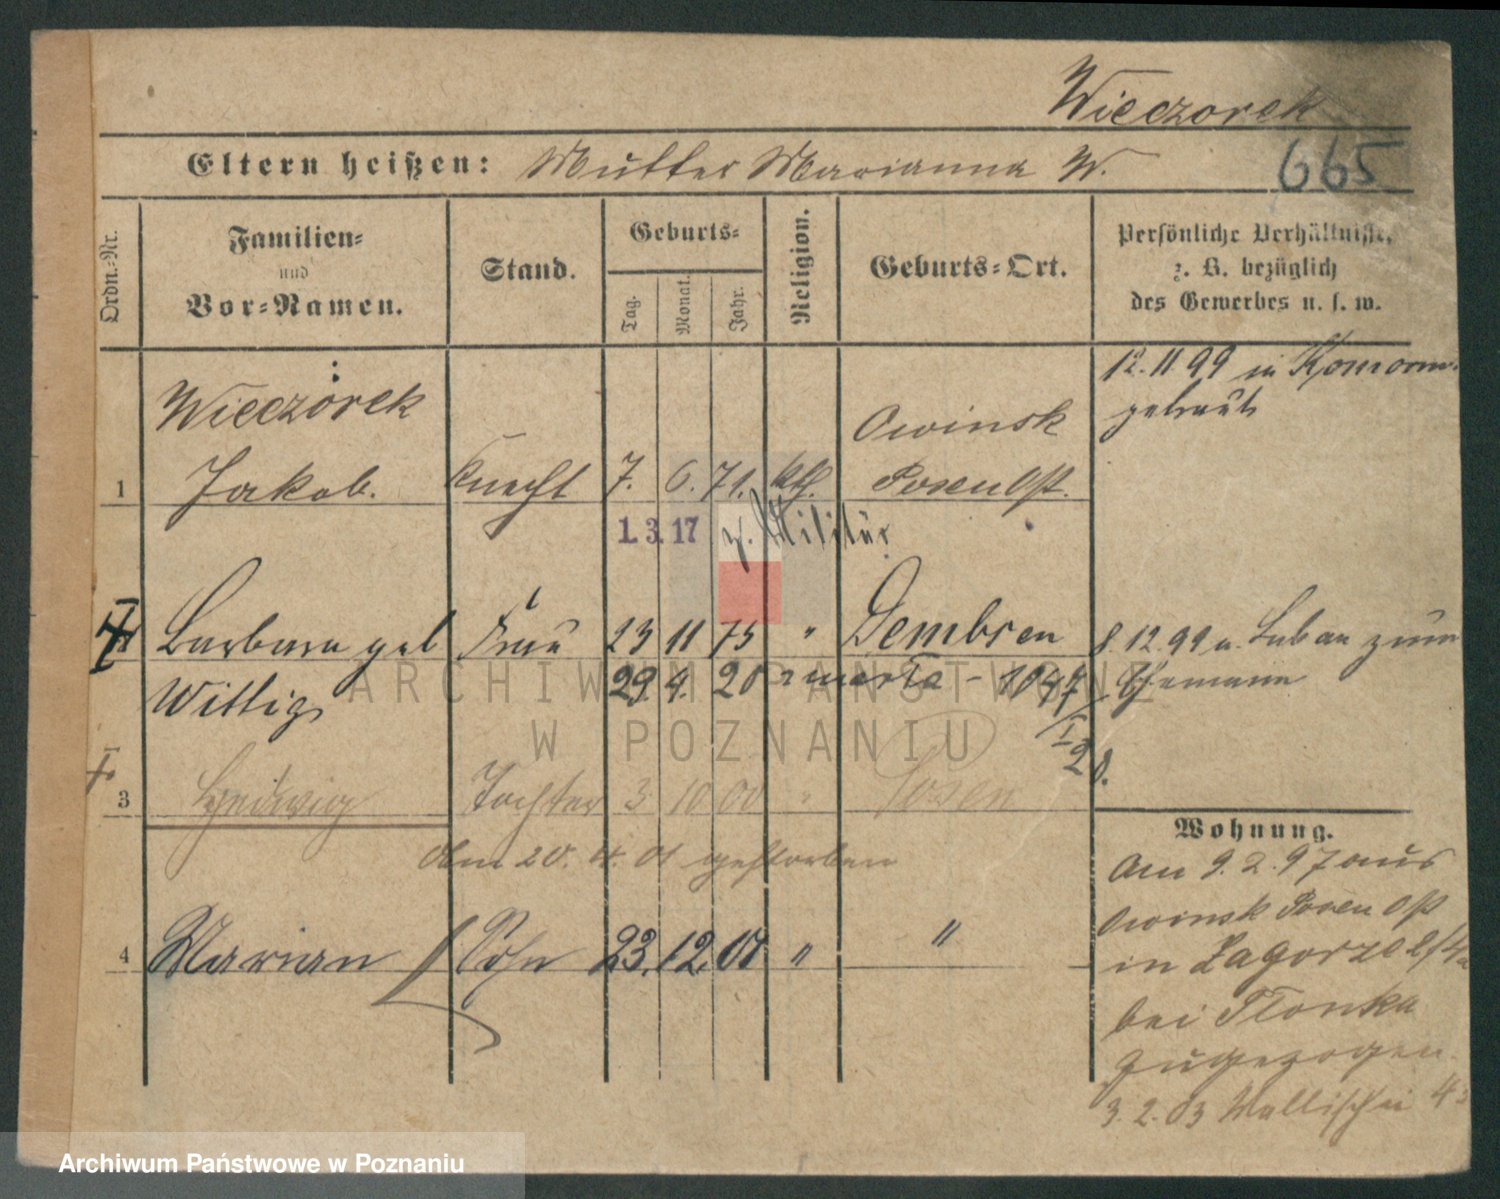 Wieczorek
Eltern heißen: Mutter Marianna W.
665
Ordn.-Nr.
Familien-
und
Vor-Namen.
Stand.
Geburts-
Tag.
Monat.
Jahr.
Religion.
Geburts-Ort.
Persönliche Verhältnisse,
z. B. bezüglich
des Gewerbes u. s. w.
12.11.99 in
getraut
Wieczorek
Owinsk
1 Jakob. Knecht 7. 6. 71. kth. Posen Ost.
1.3.17 z. Militär
Barbara geb Frau 23 11 75 " Dembsen 8.12.99 n. Luban zum
Wittig 29 4. 20 zmarła - 1047 Ehemann
I
20.
3 Hedwig Tochter 3 10 00 " Posen
am 20. 4. 01 gestorben
4 Marian Sohn 23. 12. 01 " "
Wohnung.
Am 9.2.97 aus
Owinsk Posen Ost
in Zagorze
bei Tlonka
zugezogen.
3.2.03 Wallischei
ARCHIWUM PAŃSTWOWE
W POZNANIU
Archiwum Państwowe w Poznaniu